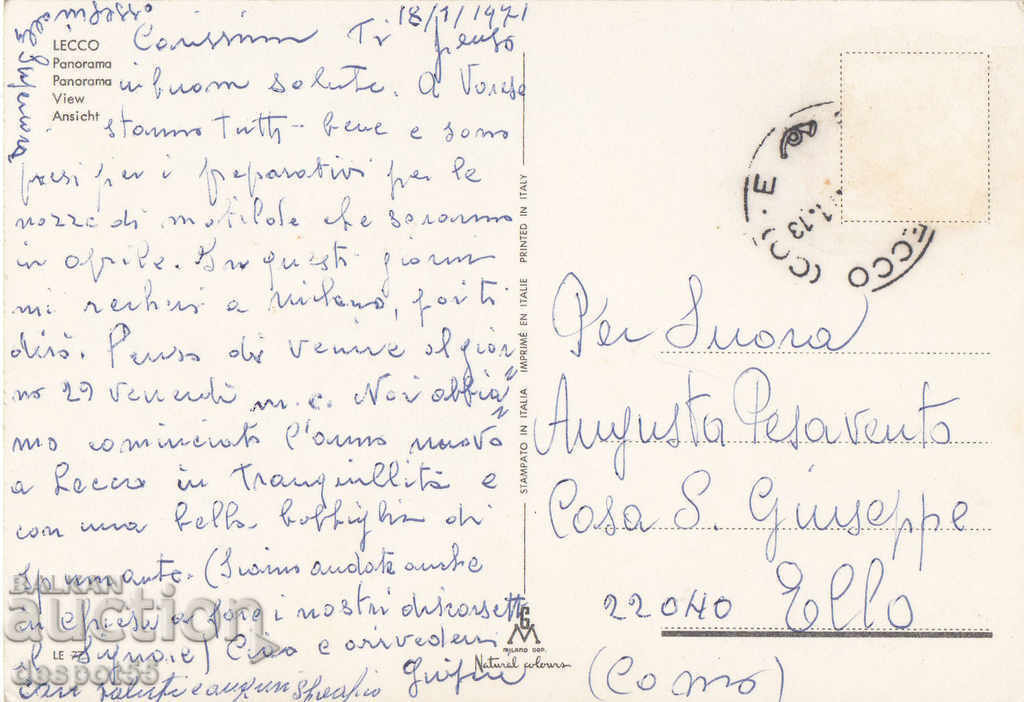 18/1/1971
LECCO
Panorama
Panorama
View
Ansicht
Carissima Ti penso
in buona salute. A Varese
stanno tutti bene e sono
presi per i preparativi per le
nozze di Matilde che saranno
in aprile. In questi giorni
mi a Milano, poi ti
dirò. Penso di venire al gior
no 29 venerdì m.c. Noi abbia
mo cominciato l'anno nuovo
a Lecco in tranquillità e
con una bella bottiglia di
spumante. (Siamo andate anche
in chiesa a fare i nostri discorsetti
al Signore) Ciao e arrivederci
cari saluti e auguri
Superiora
STAMPATO IN ITALIA IMPRIMÉ EN ITALIE PRINTED IN ITALY
MILANO DEP.
Natural colours
LECCO (CO)
Per Suora
Augusta Pesavento
Casa S. Giuseppe
22040 Ello
(Como)
BALKAN
auction
despot55